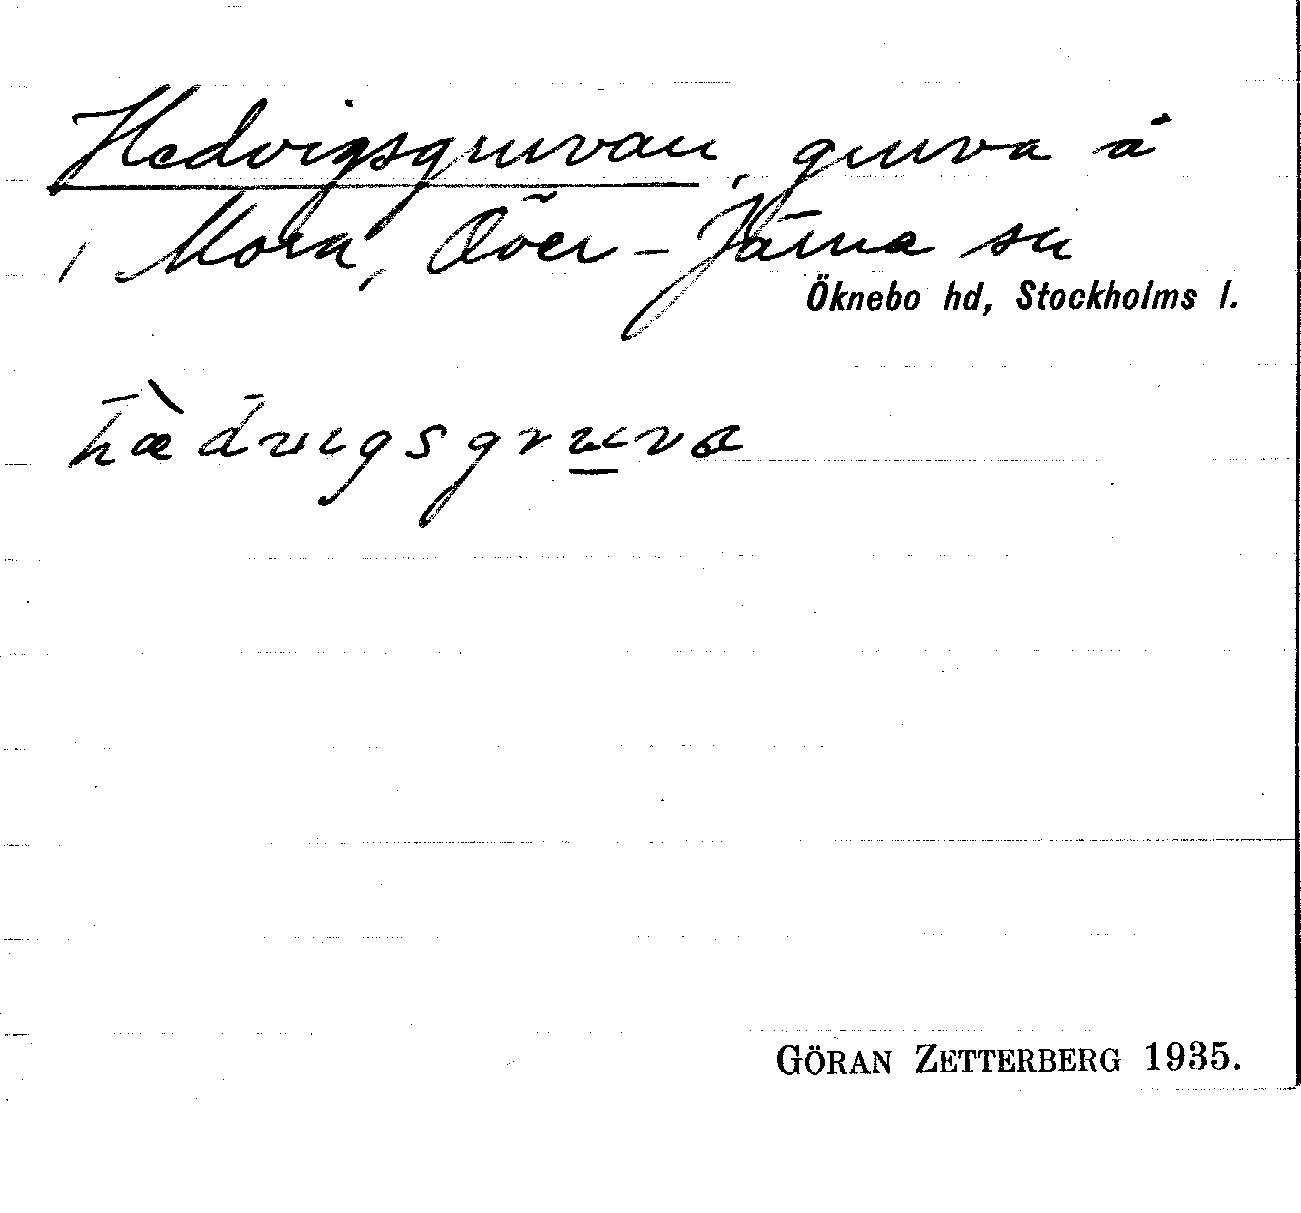 Hedvigsgruvan, gruva å
i Mora, Över-Järna sn
Öknebo hd, Stockholms l.
hæ̀dvigsgruva
GÖRAN ZETTERBERG 1935.